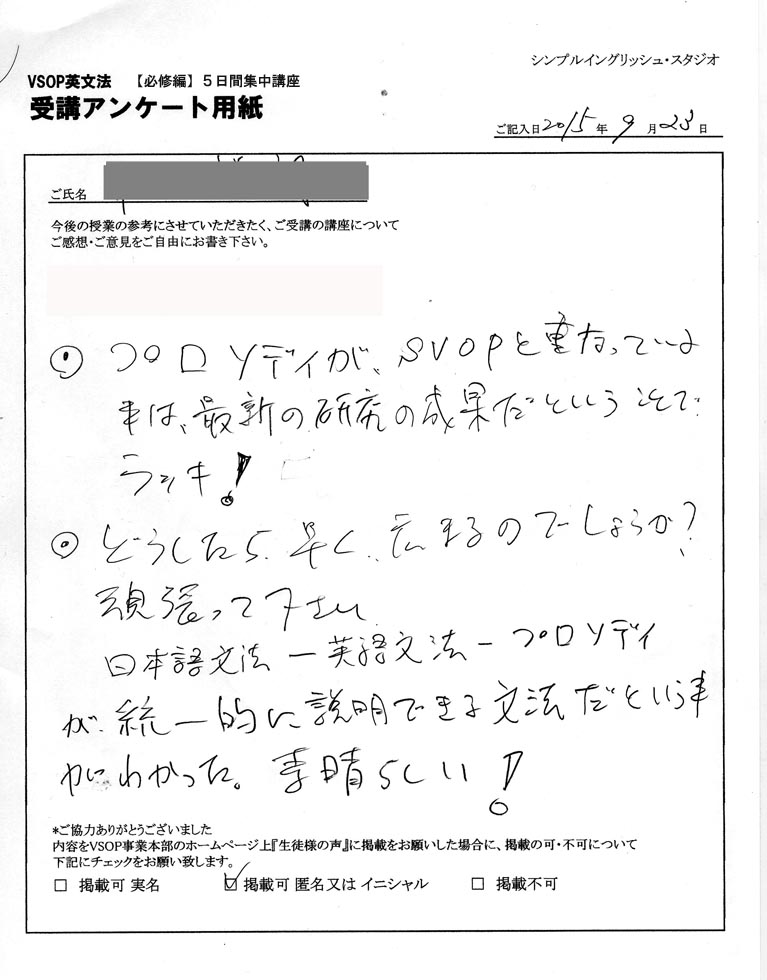 シンプルイングリッシュ・スタジオ
VSOP英文法 【必修編】5日間集中講座
受講アンケート用紙
ご記入日2015年9月23日
ご氏名
今後の授業の参考にさせていただきたく、ご受講の講座について
ご感想・ご意見をご自由にお書き下さい。
プロソディが、SVOPと重なっている
事は、最新の研究の成果だということで
ラッキ!
どうしたら、早く、広まるのでしょうか?
頑張って下さい
日本語文法ー英語文法ープロソディ
が、統一的に説明できる文法だという事
がわかった。素晴らしい!
*ご協力ありがとうございました
内容をVSOP事業本部のホームページ上『生徒様の声』に掲載をお願いした場合に、掲載の可・不可について
下記にチェックをお願い致します。
□ 掲載可 実名 ☑ 掲載可 匿名又は イニシャル □ 掲載不可